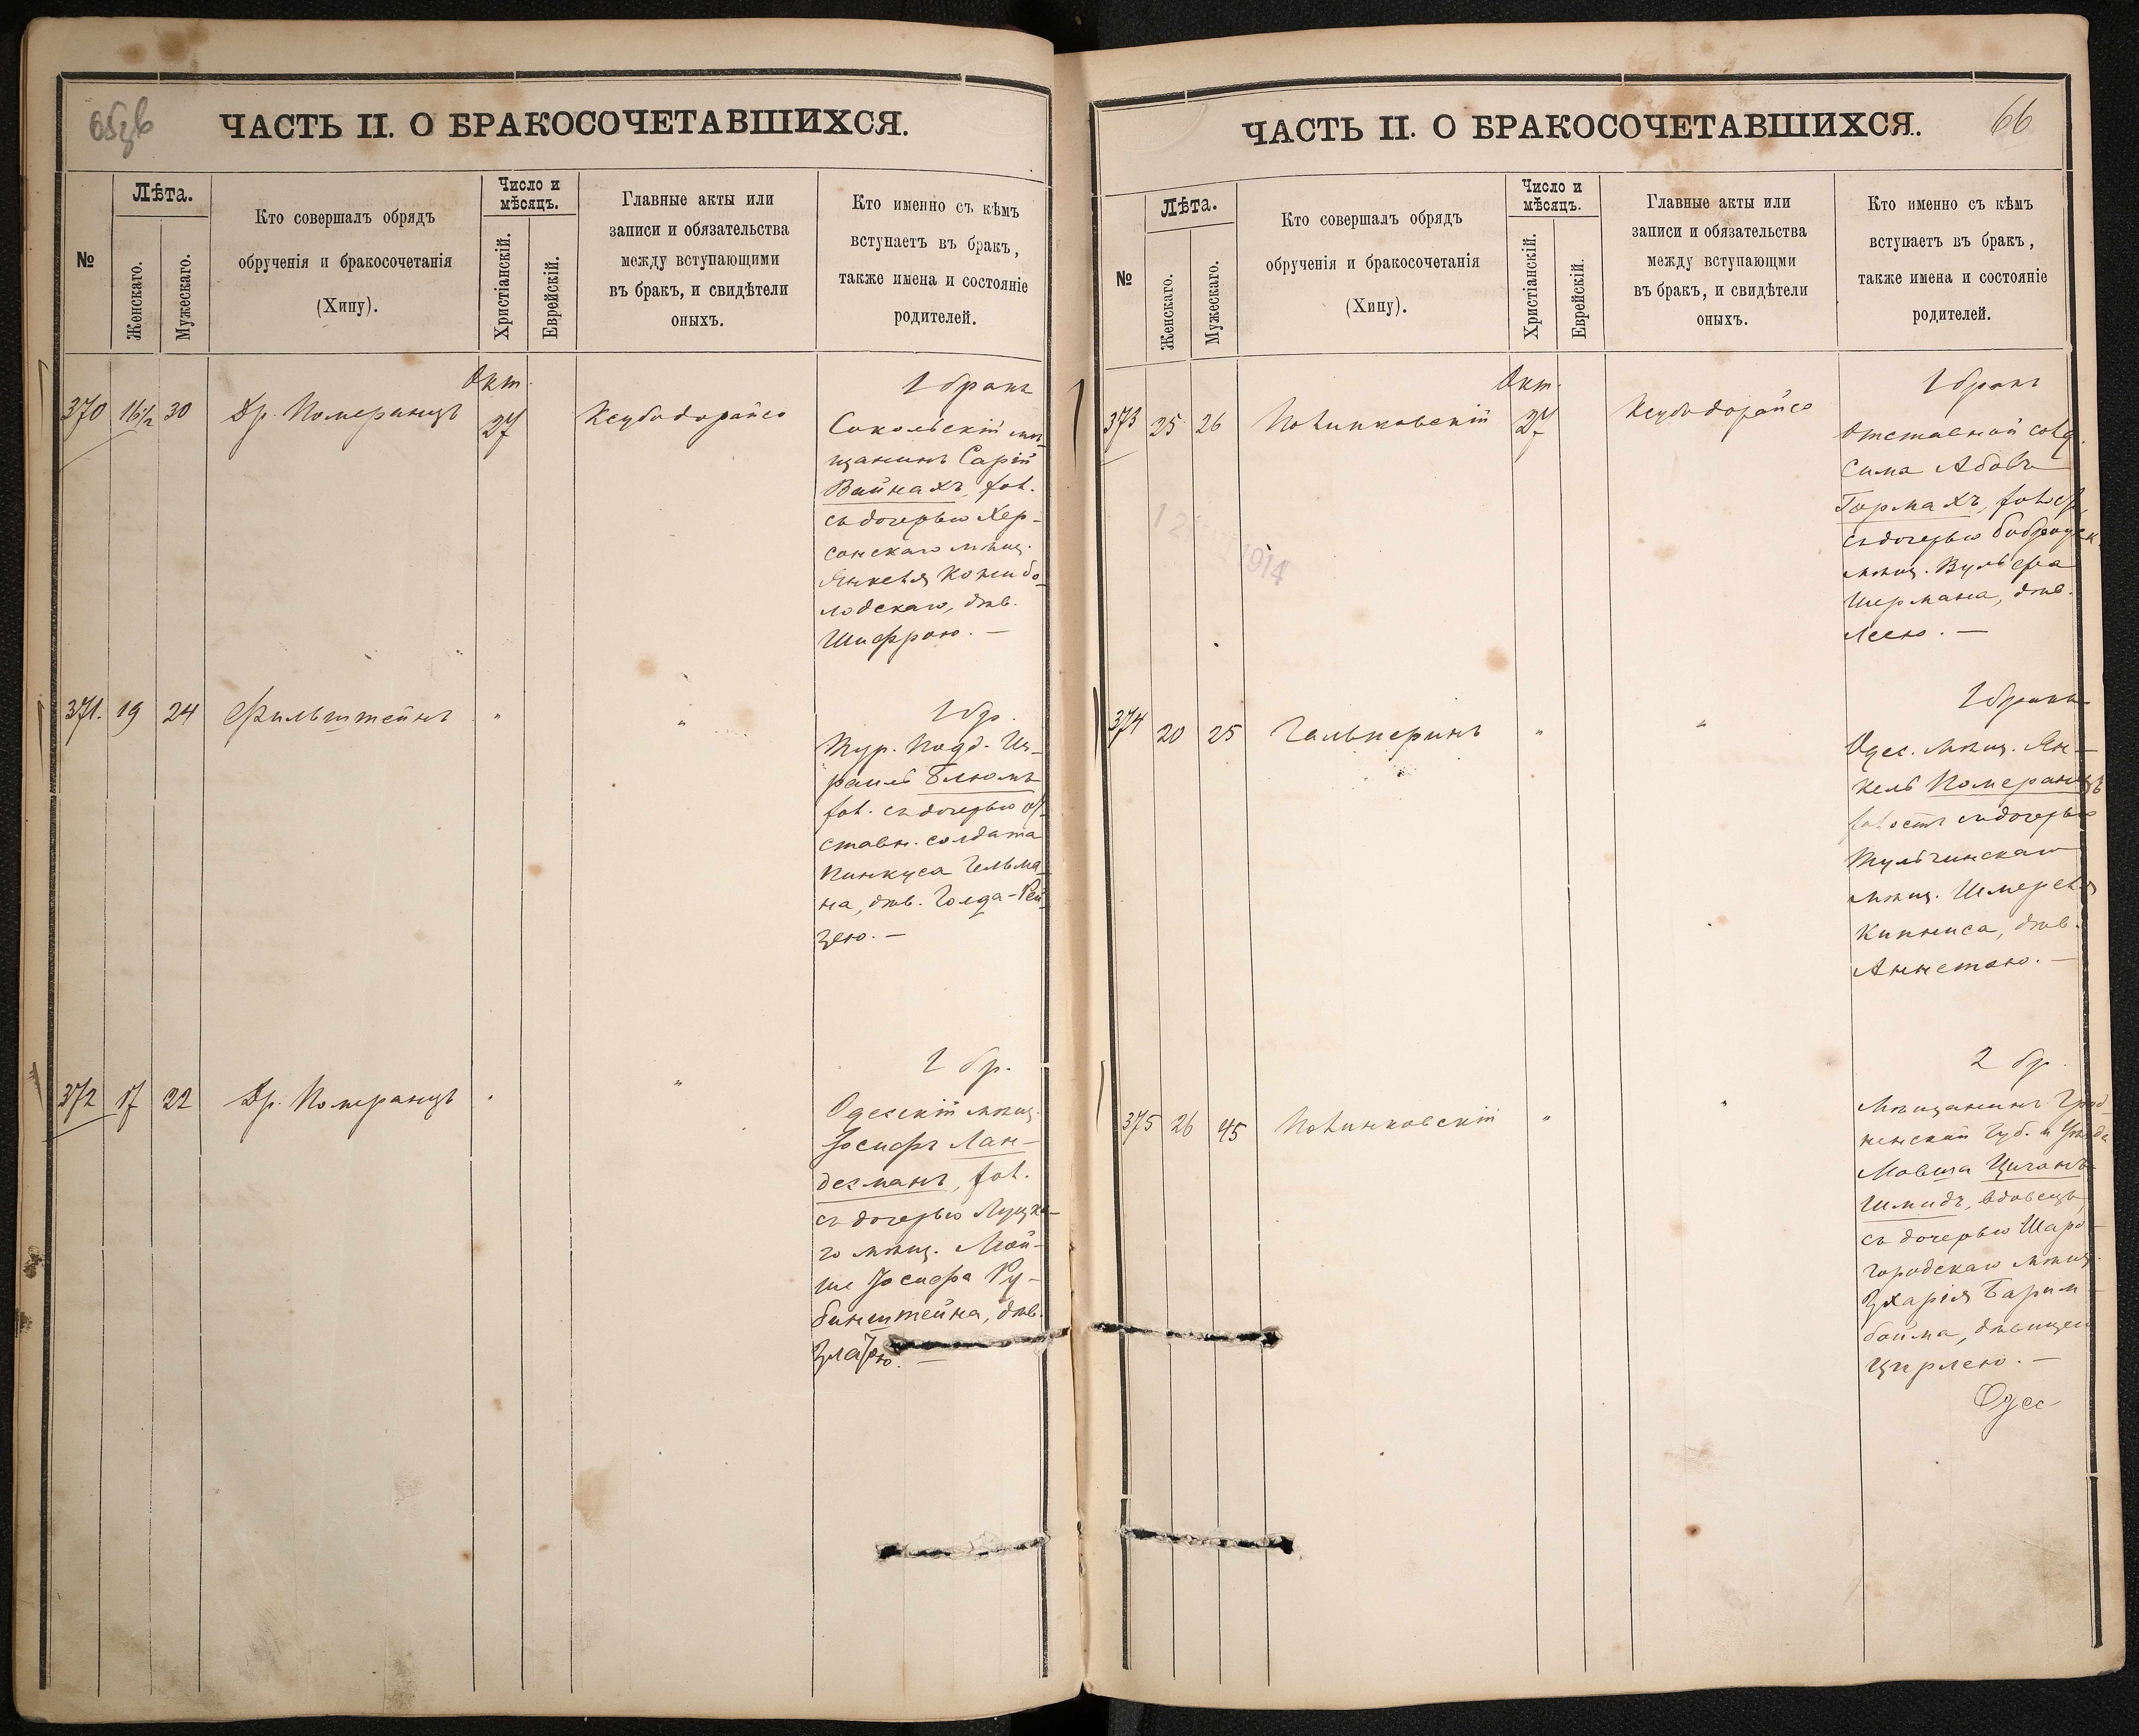 ЧАСТЬ II. О БРАКОСОЧЕТАВШИХСЯ.
№
Лѣта.
Женскаго.
Мужескаго.
Кто совершалъ обрядъ
обрученія и бракосочетанія
(Хипу).
Число и
мѣсяцъ.
Христіанскій.
Еврейскій.
Главные акты или
записи и обязательства
между вступающими
въ бракъ, и свидѣтели
оныхъ.
Кто именно съ кѣмъ
вступаетъ въ бракъ,
также имена и состояніе
родителей.
370 16½ 30 Др. Померанцъ Окт. 27 Ксубодорайсо
1 бракъ
Сокольскій мѣ-
щанинъ Сарій
Вайнахъ, хол.
съ дочерью Хер-
сонскаго мѣщ.
Янкеля
лодскаго, дѣв.
Шифрою. —
371. 19 24 Фильштейнъ " "
1 бр.
Тур. Подд. Из-
раиль Блюмъ
хол. съ дочерью от-
ставн. солдата
Пинкуса Гельма-
на, дѣв. Голда-Рей-
зею. —
372 17 22 Др. Померанцъ " "
1 бр.
Одесскій мѣщ.
Іосифъ Лан-
десманъ, хол.
съ дочерью Луцка-
го мѣщ. Мой-
ше Іосифа Ру-
бинштейна, дѣв.
Златою. —
ЧАСТЬ II. О БРАКОСОЧЕТАВШИХСЯ.
66
№
Лѣта.
Женскаго.
Мужескаго.
Кто совершалъ обрядъ
обрученія и бракосочетанія
(Хипу).
Число и
мѣсяцъ.
Христіанскій.
Еврейскій.
Главные акты или
записи и обязательства
между вступающми
въ бракъ, и свидѣтели
оныхъ.
Кто именно съ кѣмъ
вступаетъ въ бракъ,
также имена и состояніе
родителей.
373 25 26 Полинковскій Окт. 27 Ксубодорайсо
1914
1 бракъ
Отставной солд.
Сима Абовъ
Гормахъ, холост.
съ дочерью Бобруйск.
мѣщ. Вульфа
Шермана, дѣв.
Леею. —
374 20 25 Гальперинъ " "
1 бракъ
Одес. мѣщ. Ян-
кель Померанцъ
холостъ съ дочерью
Тульчинскаго
мѣщ. Шмереля
Кипниса, дѣв.
Аннетою. —
375 26 45 Полинковскій " "
2 бр.
Мѣщанинъ Грод-
ненской Губ. и Уѣзда
Мовша Циганъ-
Шмидъ, вдовецъ,
съ дочерью Шаро-
городскаго мѣщ.
Зхарія Барим-
бойма, дѣвицею
Цирлею. —
Одес